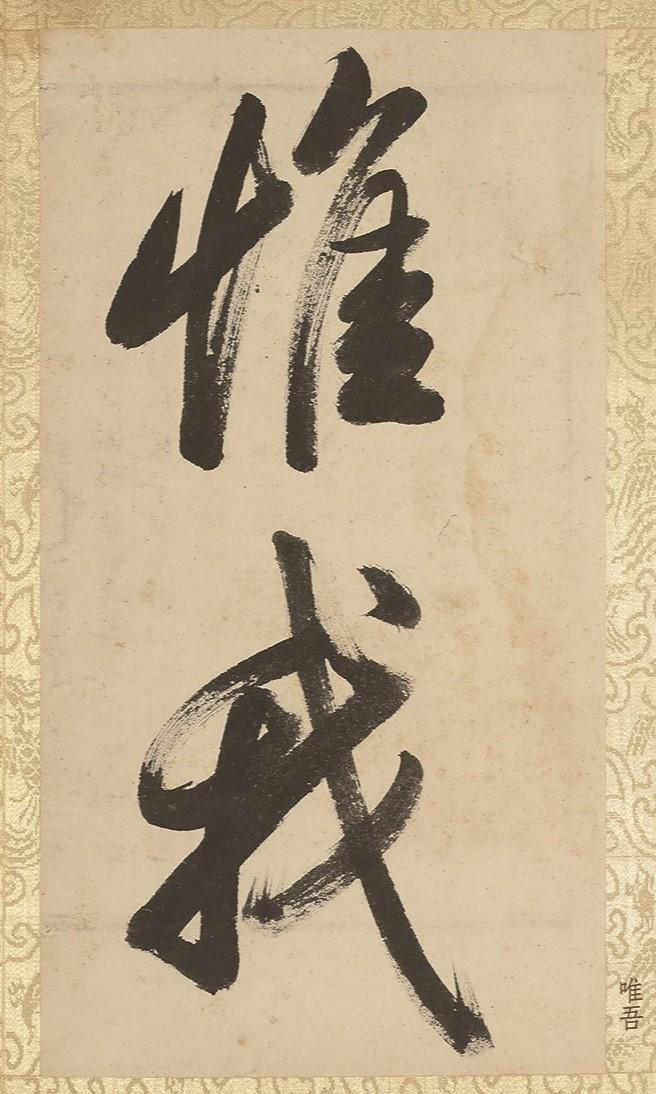 惟我
唯吾